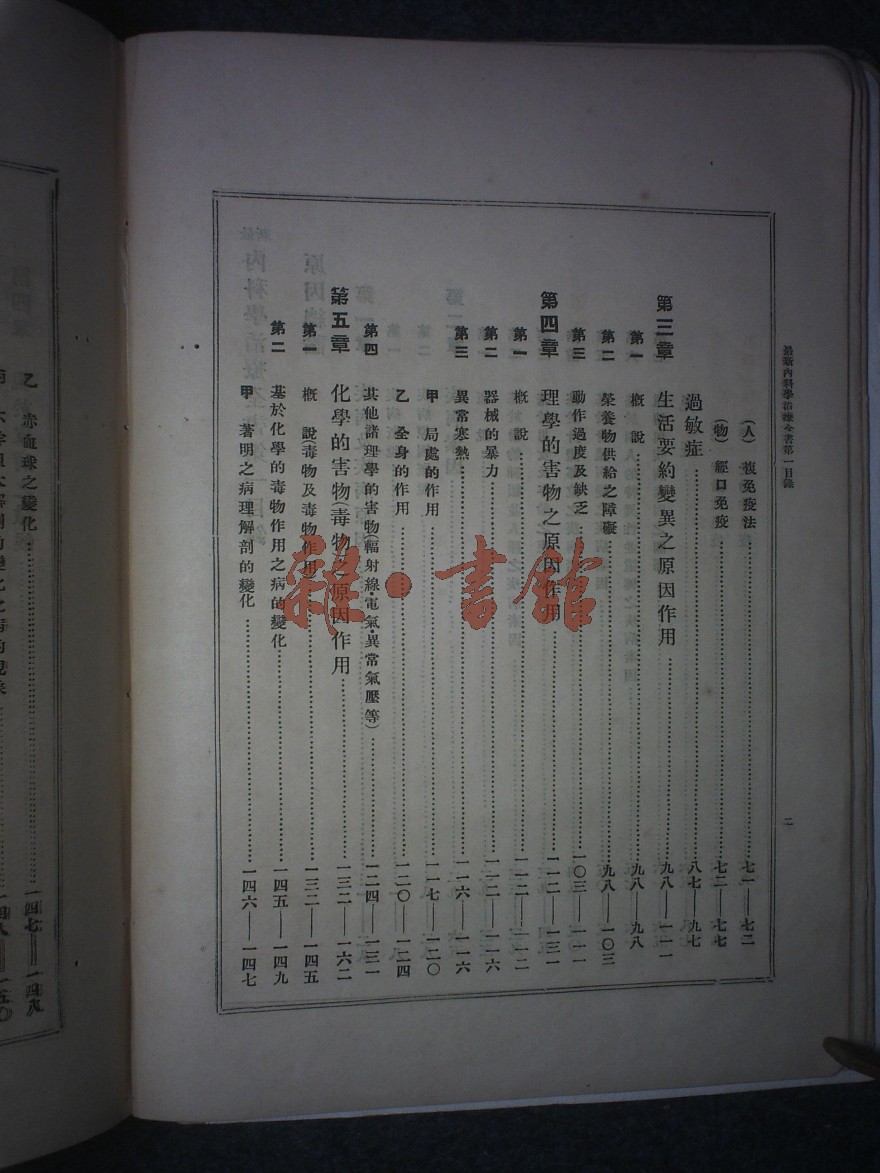 最新內科學治療全書第一目錄
二
(人) 複免疫法 七一——七二
(物) 經口免疫 七二——七七
過敏症 八七——九七
第三章 生活要約變異之原因作用 九八——一一一
第一 概說 九八——九八
第二 榮養物供給之障礙 九八——一〇三
第三 動作過度及缺乏 一〇三——一一一
第四章 理學的害物之原因作用 一一二——一三一
第一 概說 一一二——一一二
第二 器械的暴力 一一二——一一六
第三 異常寒熱 一一六——一一六
甲 局處的作用 一一七——一二〇
乙 全身的作用 一二〇——一二四
第四 其他諸理學的害物(輻射線·電氣·異常氣壓等) 一二四——一三一
第五章 化學的害物(毒物)之原因作用 一三二——一六二
第一 概說(毒物及毒物作用) 一三二——一四五
第二 基於化學的毒物作用之病的變化 一四五——一四九
甲 著明之病理解剖的變化 一四六——一四七
乙 赤血球之變化 一四七——一四八
雜·書館